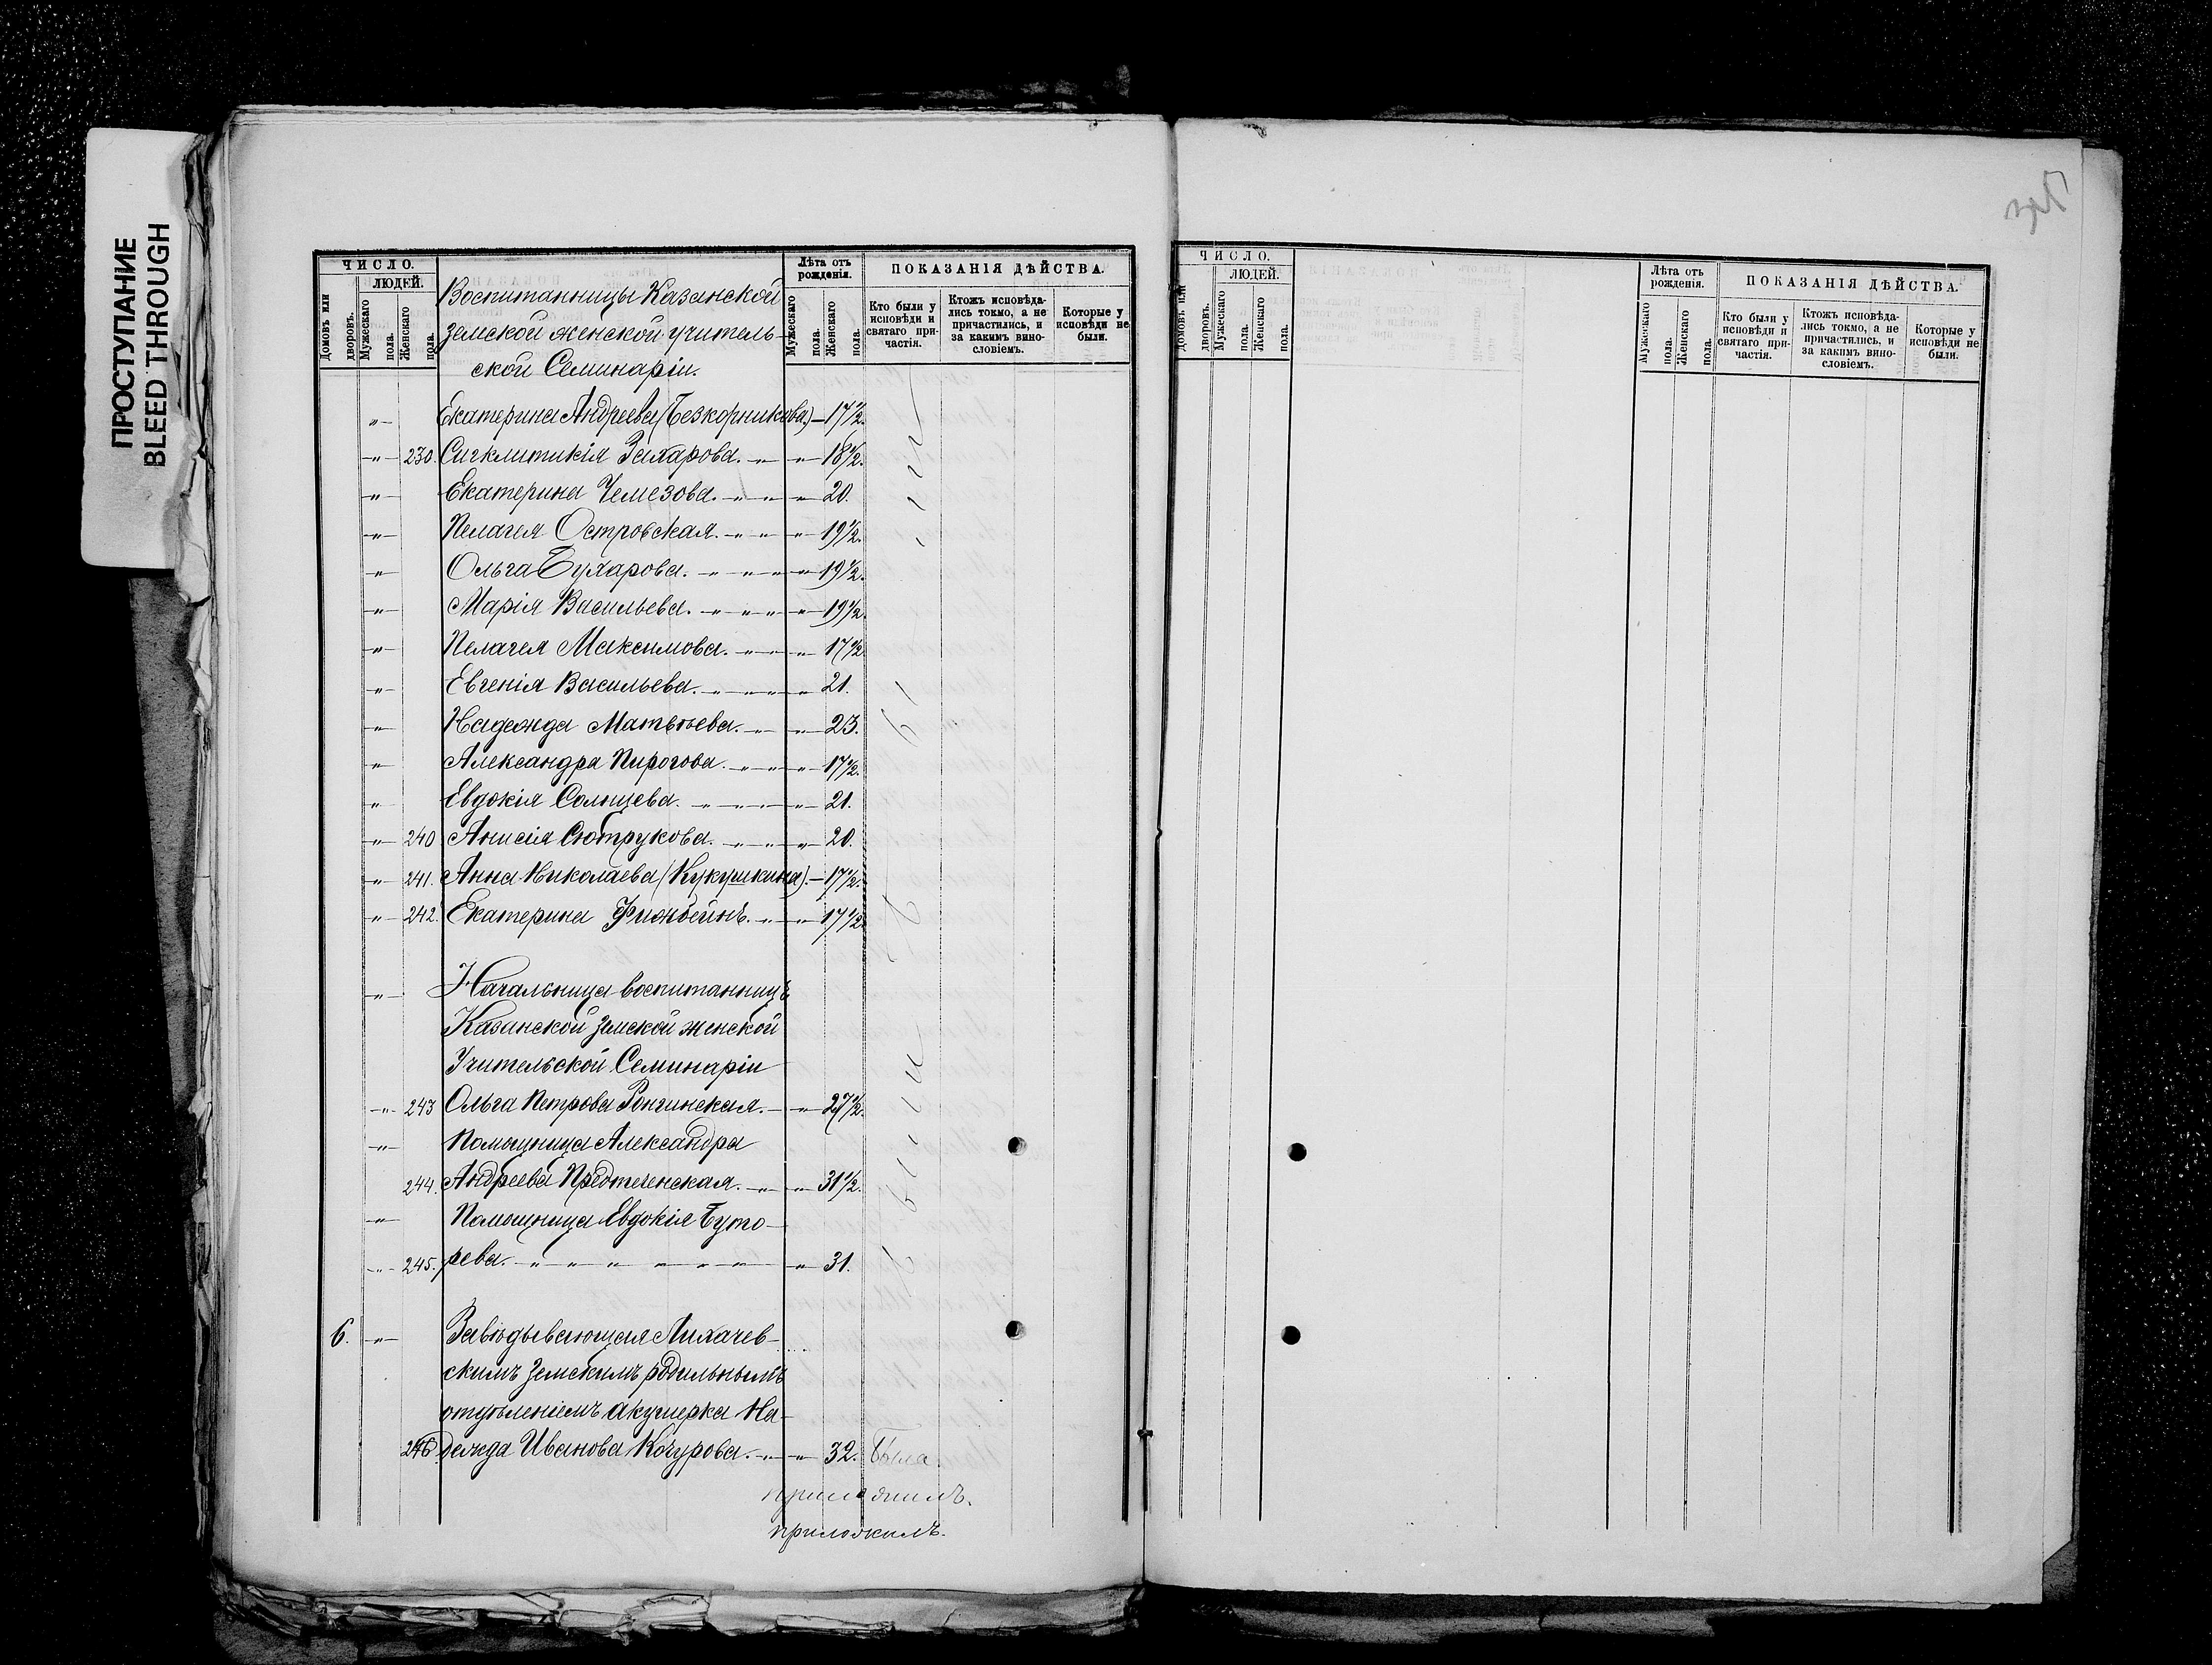 ПРОСТУПАНИЕ
BLEED THROUGH
ЧИСЛО.
ЛЮДЕЙ.
Домовъ или дворовъ.
Мужескаго пола.
Женскаго пола.
Воспитанницы Казанской
земской женской учитель-
ской Семинаріи.
Лѣта отъ рожденія.
Мужескаго пола.
Женскаго пола.
ПОКАЗАНІЯ ДѢЙСТВА.
Кто были у исповѣди и святаго причастія.
Ктожъ исповѣдались токмо, а не причастились, и за какимъ винословіемъ.
Которые у исповѣди не были.
-"- Екатерина Андреева (Безкорникова) - 17½.
-"- 230. Сигклитикія Захарова. -"- -"- 18½.
-"- Екатерина Чемезова. -"- -"- 20.
-"- Пелагея Островская. -"- -"- 19½.
-"- Ольга Бухарова. -"- -"- 19½.
-"- Марія Васильева. -"- -"- 19½.
-"- Пелагея Максимова. -"- -"- 17½
-"- Евгенія Васильева. -"- -"- 21.
-"- Надежда Матвѣева. -"- -"- 23.
-"- Александра Пирогова. -"- -"- 17½.
-"- Евдокія Солнцева. -"- -"- 21.
-"- 240 Анисія Сютрукова. -"- -"- 20.
-"- 241. Анна Николаева (Кукушкина). - 17½.
-"- 242. Екатерина Фижбейнъ. -"- -"- 17½
были
-"- Начальница воспитанницъ
Казанской земской женской
Учительской Семинаріи
-"- 243 Ольга Петрова Ронгинская. -"- 27½.
-"- Помощница Александра
244. Андреева Предтеченская. -"- -"- 31½.
-"- Помощница Евдокія Буто-
-"- 245. рева. -"- -"- -"- 31.
были
6. -"- Завѣдывающая Лихачев-
скимъ земскимъ родильнымъ
отдѣленіемъ акушерка На-
246. дежда Иванова Кочурова. -"- -"- 32. Была
приложилъ.
ЧИСЛО.
ЛЮДЕЙ.
Домовъ или дворовъ.
Мужескаго пола.
Женскаго пола.
Лѣта отъ рожденія.
Мужескаго пола.
Женскаго пола.
ПОКАЗАНІЯ ДѢЙСТВА.
Кто были у исповѣди и святаго причастія.
Ктожъ исповѣдались токмо, а не причастились, и за какимъ винословіемъ.
Которые у исповѣди не были.